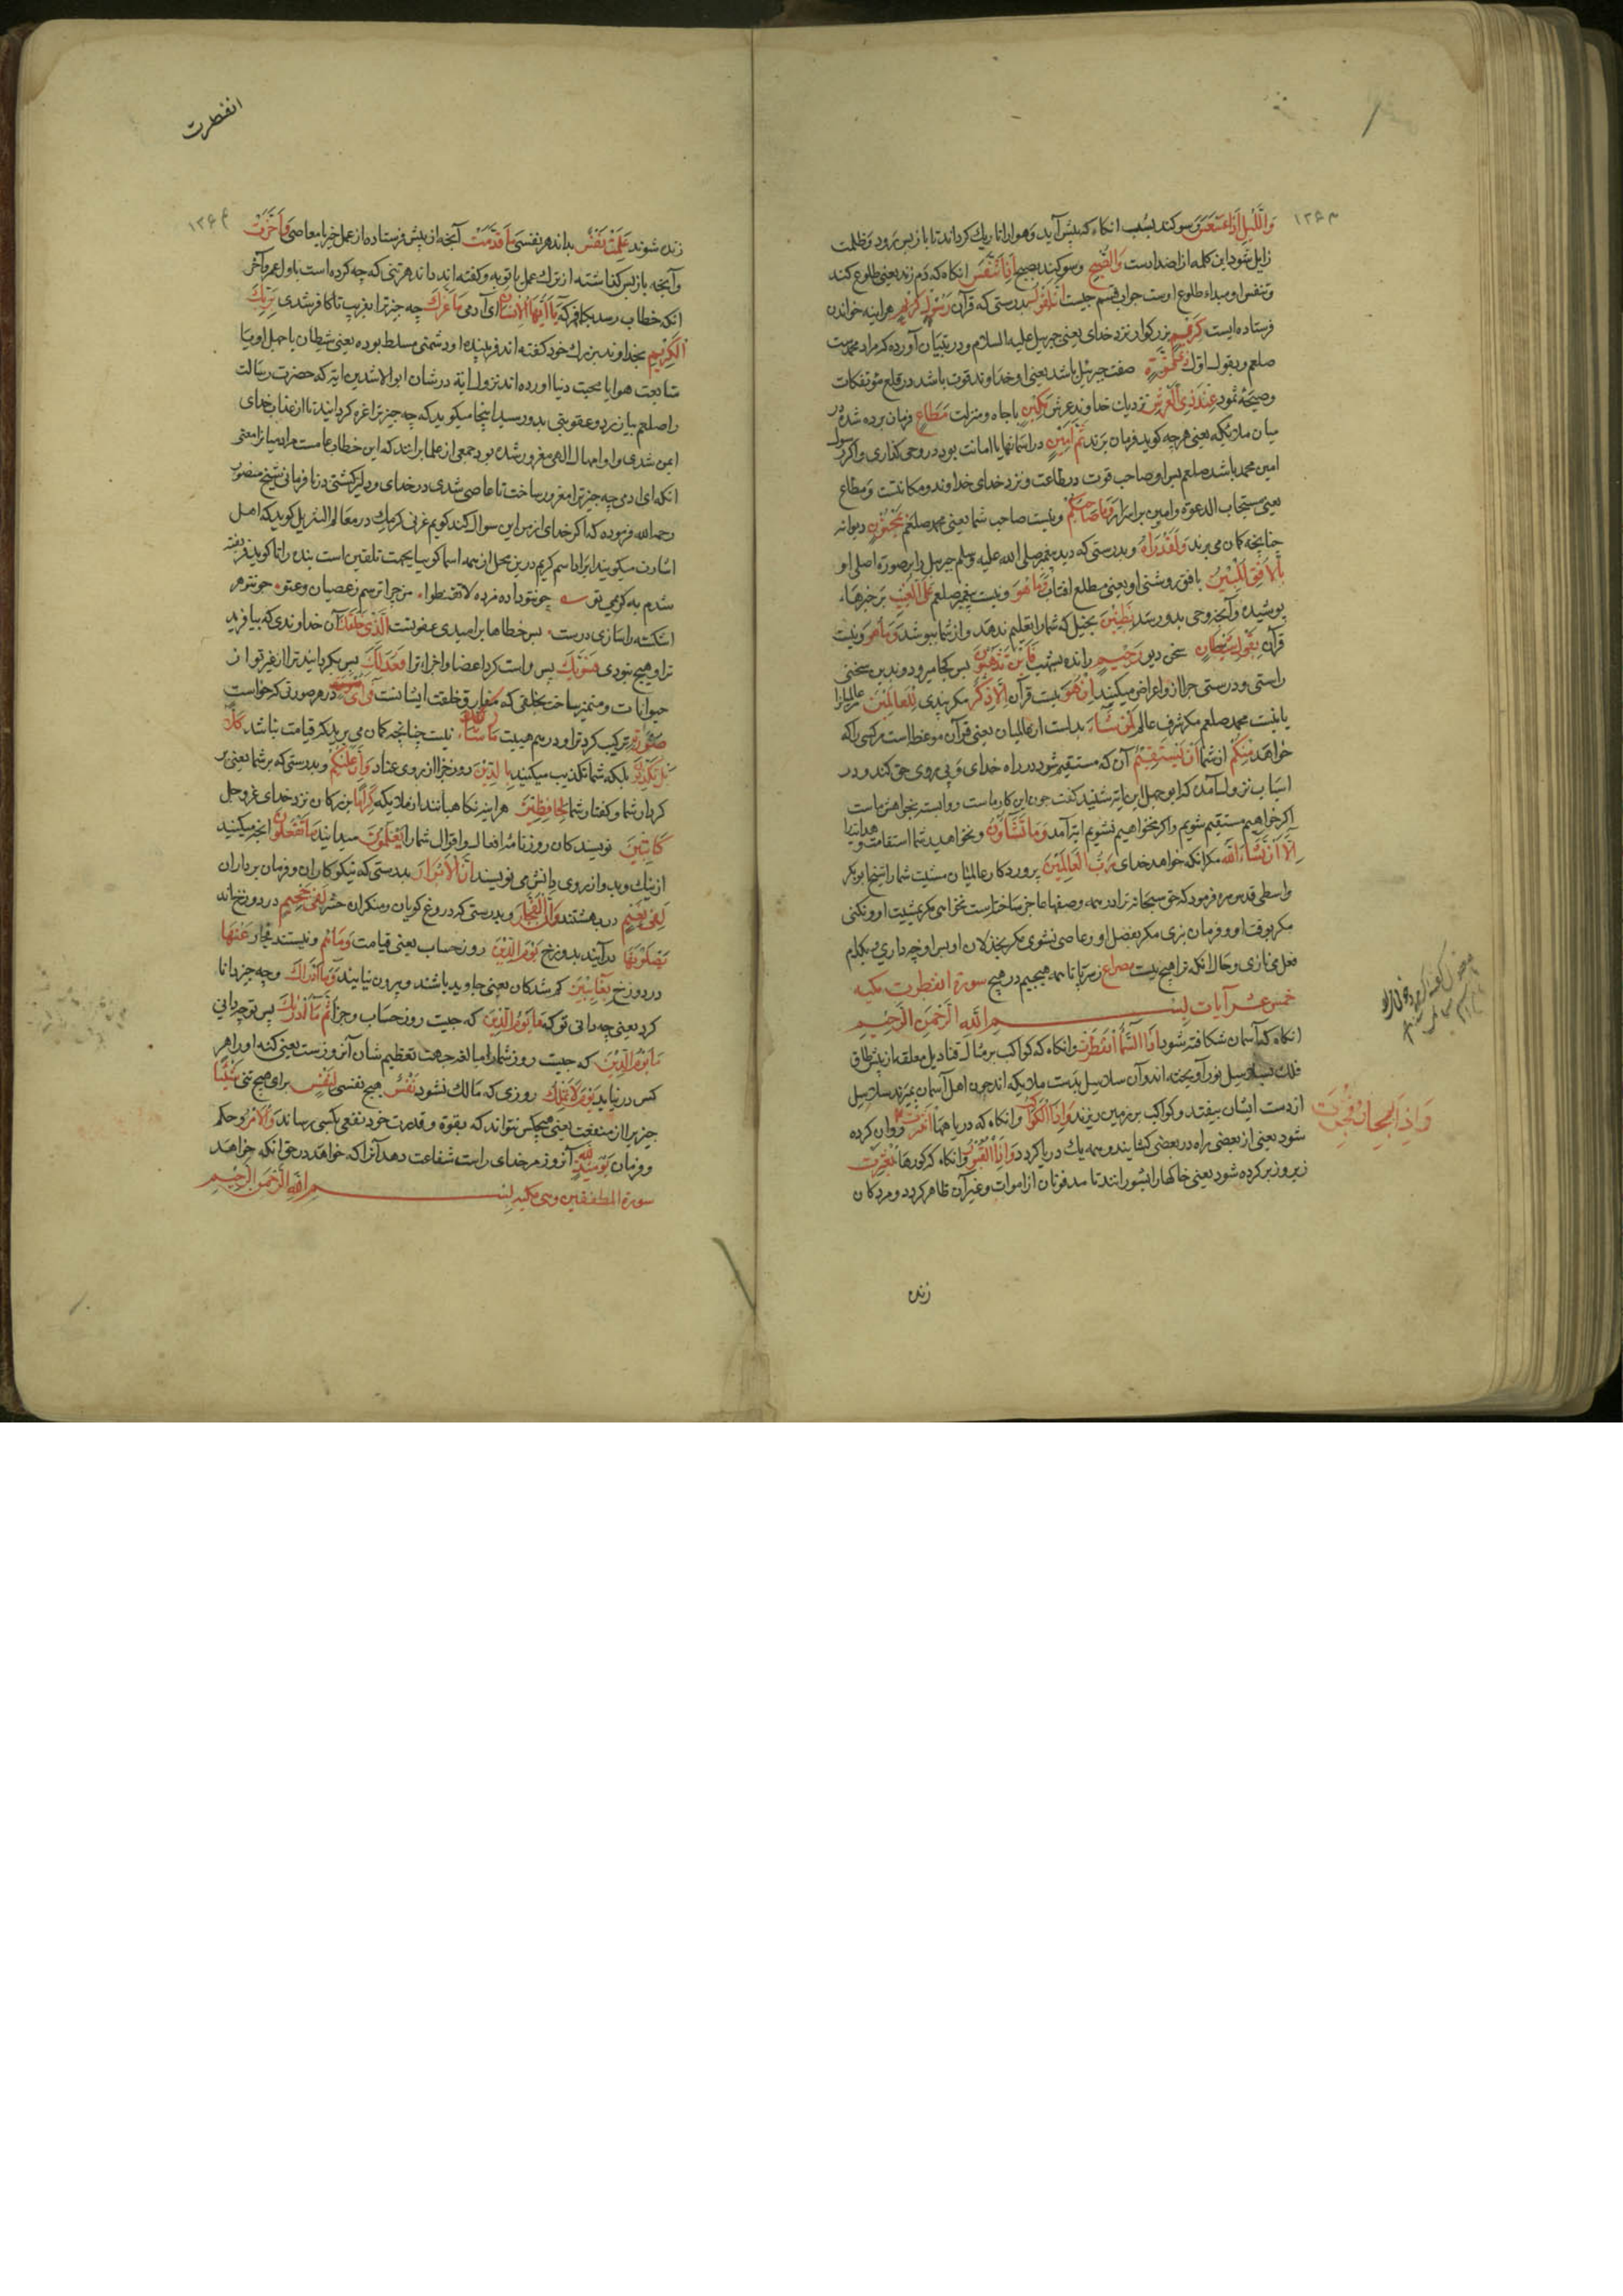 وَاللَّيْلِ اِذَا عَسْعَسَ سوكند بشب انكاه كه پيش آيد وهوا را تاريك كرداند تا باز پس رود وظلمت
زايل شود اين كلمه از اضداد است وَالصُّبْحِ وسوكند بصبح اِذَا تَنَفَّسَ انكاه كه دم زند يعنى طلوع كند
وتنفس او مبداء طلوع اوست جواب قسم چيست اِنَّهُ لَقَوْلُ بدرستى كه قرآن رَسُوْلٍ كَرِيْمٍ هراينه خواندن
فرستاده ايست كَرِيْمٍ بزركوار نزد خداى يعنى جبرئيل عليه السلام ودر تبيان آورده كه مراد محمد است
صلعم وبقول اول ذِىْ قُوَّةٍ صفت جبرئيل باشد يعنى او خداوند قوت باشد در قلع مؤتفكات
وصيحه ثمود عِنْدَ ذِى الْعَرْشِ نزديك خداوند عرش مَكِيْنٍ باجاه ومنزلت مُطَاعٍ فرمان برده شده در
ميان ملائكه يعنى هرچه كويد فرمان برند ثَمَّ اَمِيْنٍ در اسمانها با امانت بود در وحى كذارى واكر رسول
امين محمد باشد صلعم پس او صاحب قوت در طاعت ونزد خداى خداوند ومكانتست ومطاع
يعنى مستجاب الدعوة وامين بر اسرار وَمَا صَاحِبُكُمْ ونيست صاحب شما يعنى محمد صلعم بِمَجْنُوْنٍ ديوانه
چنانچه كمان مى برند وَلَقَدْ رَاٰهُ وبدرستى كه ديد پيغمبر صلى الله عليه وسلم جبرئيل را بر صورة اصلى او
بِالْاُفُقِ الْمُبِيْنِ بافق روشنى او يعنى مطلع افتاب وَمَا هُوَ ونيست پيغمبر صلعم عَلَى الْغَيْبِ بر خبرهاء
پوشيده وآنچه وحى بدو رسد بِضَنِيْنٍ بخيل كه شما را تعليم ندهد واز شما بپوشد وَمَا هُوَ ونيست
قرآن بِقَوْلِ شَيْطَانٍ سخن ديو رَجِيْمٍ رانده بشهب فَاَيْنَ تَذْهَبُوْنَ پس كجا ميرويد وبدين سخنى
راستى ودرستى چرا ازو اعراض ميكنيد اِنْ هُوَ نيست قرآن اِلَّا ذِكْرٌ مكر پندى لِلْعَالَمِيْنَ مر عالميانرا
يا نيست محمد صلعم مكر شرف عالم لِمَنْ شَاءَ بدلست از عالميان يعنى قرآن موعظه است مر كسى را كه
خواهد مِنْكُمْ از شما اَنْ يَسْتَقِيْمَ آن كه مستقيم شود در راه خداى وپى روى حق كند ودر
اسباب نزول آمده كه ابوجهل اين ايه شنيد كفت چون اين كار ماست وابسته بخواهش ماست
اكر خواهيم مستقيم شويم واكر نخواهيم نشويم ايه آمد وَمَا تَشَاؤُنَ ونخواهيد شما استقامت وهدايت را
اِلَّا اَنْ يَشَاءَ اللّٰهُ مكر انكه خواهد خداى رَبُّ الْعَالَمِيْنَ پروردكار عالميان مشيت شما را شيخ ابوبكر
واسطى قدس سره فرمود كه حق سبحانه ترا در همه وصفها عاجز ساخته است نخواهى مكر بمشيت او ونكنى
مكر بوقت او وفرمان نبرى مكر بفضل او وعاصى نشوى مكر بخذلان او پس او چه دارى وبكدام
فعل مى نازى وحال انكه ترا هيچ نيست مصراع ز سر تا پا همه هيچيم در هيچ سورة انفطرت مكيه
خمس عشر آيات بسم الله الرحمن الرحيم
انكاه كه آسمان شكافته شود اِذَا السَّمَاءُ انْفَطَرَتْ وانكاه كه كواكب بر مثال قناديل معلقه از پيش طاق
فلك بسلاسل نور آويخته اند وآن سلاسل بدست ملايكه اند چون اهل آسمان بميرند سلاسل
از دست ايشان بيفتد وكواكب بر زمين ريزند وَاِذَا الْكَوَاكِبُ انْتَثَرَتْ وانكاه كه درياهما روان كرده
شود يعنى از بعضى راه در بعضى كشايند وهمه يك دريا كردد وَاِذَا الْقُبُوْرُ وانكاه كه كورها بُعْثِرَتْ
زير وزبر كرده شود يعنى خاكها را بشورانند تا مدفونان از اموات وغير آن ظاهر كردد ومردكان
وَاِذَا الْبِحَارُ فُجِّرَتْ
زنده
۱۲۶۳
انفطرت
۱۲۶۴
زنده شوند عَلِمَتْ نَفْسٌ بداند هر نفسى مَا قَدَّمَتْ آنچه از پيش فرستاده از عمل خير يا معاصى وَاَخَّرَتْ
وآنچه باز پس كذاشته از ترك عمل يا توبه وكفته اند داند هر تنى كه چه كرده است باول عمر وآخر
انكه خطاب رسد بكافر كه يَا اَيُّهَا الْاِنْسَانُ اى آدمى مَا غَرَّكَ چه چيز ترا بفريب تا كافر شدى بِرَبِّكَ
الْكَرِيْمِ بخداوند بزرك خود كفته اند فريبنده او دشمنى مسلط بوده يعنى شيطان يا جهل او ويا
متابعت هوا يا محبت دنيا اورده اند نزول اية در شان ابو الاشدين ايه كه حضرت رسالت
را صلعم بيازرد وعقوبتى بدو رسيد اينجا ميكويد كه چه چيز ترا غره كردانيد تا از عذاب خداى
ايمن شدى واو امهال الهى مغرور شده بود جمعى از علما برانند كه اين خطاب عامست مر ادميانرا معنى
انكه اى ادمى چه چيز ترا مغرور ساخت تا عاصى شدى در خداى ودلير كشتى در نافرمانى شيخ منصور
رحمه الله فرموده كه اكر خداى از من اين سوال كند كويم غرنى كرمك در معالم التنزيل كويد كه اهل
اشارت ميكويند ايراد اسم كريم درين محل از همه اسما كوييا بجهت تلقين است بنده را تا كويد فريفته
شدم به كريمى تو چو نتو داده مژده لا تقنطوا من چرا ترسم ز عصيان وعتو چون تو هر
اشكسته را سازى درست پس خطاها بر اميدى عفو تست الَّذِىْ خَلَقَكَ آن خداوندى كه بيافريد
ترا وهيچ نبودى فَسَوّٰيكَ پس راست كرد اعضا واجزاء ترا فَعَدَلَكَ پس بكردانيد ترا از غير تو از
حيوانات ومتميز ساخت بخلقى كه مفارق خلقت ايشانست فِىْ اَىِّ در هر صورتى كه خواست
صُوْرَةٍ تركيب كرد ترا ودر هم هيئت مَا شَاءَ رَكَّبَكَ نيست چنانچه كمان مى بريد كه قيامت نباشد كَلَّا
بَلْ تُكَذِّبُوْنَ بلكه شما تكذيب ميكنيد بِالدِّيْنِ روز جزا از روى عناد وَاِنَّ عَلَيْكُمْ وبدرستى كه بر شما يعنى بر
كردار شما وكفتار شما لَحَافِظِيْنَ هراينه نكاهبانند از ملايكه كِرَامًا بزركان نزد خداى عز وجل
كَاتِبِيْنَ نويسندكان روزنامۀ افعال واقوال شما را يَعْلَمُوْنَ ميدانند مَا تَفْعَلُوْنَ انچه ميكنيد
از نيك وبد واز روى دانش مى نويسند اِنَّ الْاَبْرَارَ بدرستى كه نيكوكاران وفرمان برداران
لَفِىْ نَعِيْمٍ در بهشتند وَاِنَّ الْفُجَّارَ وبدرستى كه دروغ كويان ومنكران حشر لَفِىْ جَحِيْمٍ در دوزخ اند
يَصْلَوْنَهَا درآيند بدوزخ يَوْمَ الدِّيْنِ روز حساب يعنى قيامت وَمَا هُمْ ونيستند فجار عَنْهَا
در دوزخ بِغَائِبِيْنَ كم شدكان يعنى جاويد باشند وبيرون نيايند وَمَا اَدْرٰيكَ وچه چيز دانا
كرد يعنى چه دانى تو كه مَا يَوْمُ الدِّيْنِ كه چيست روز حساب وجزا ثُمَّ مَا اَدْرٰيكَ پس تو چه دانى
مَا يَوْمُ الدِّيْنِ كه چيست روز شمار را مبالغه جهت تعظيم شان آنروزست يعنى كنه او را هر
كس درنيابد يَوْمَ لَا تَمْلِكُ روزى كه مالك نشود نَفْسٌ هيچ نفسى لِنَفْسٍ براى هيچ تنى شَيْئًا
چيزيرا از منفعت يعنى هيچكس نتواند كه بقوة وقدرت خود نفعى بكسى رساند وَالْاَمْرُ وحكم
وفرمان يَوْمَئِذٍ لِلّٰهِ آنروز مر خداى راست شفاعت دهد آنرا كه خواهد در حق انكه خواهد
سورة المطففين وهى مكيه بسم الله الرحمن الرحيم